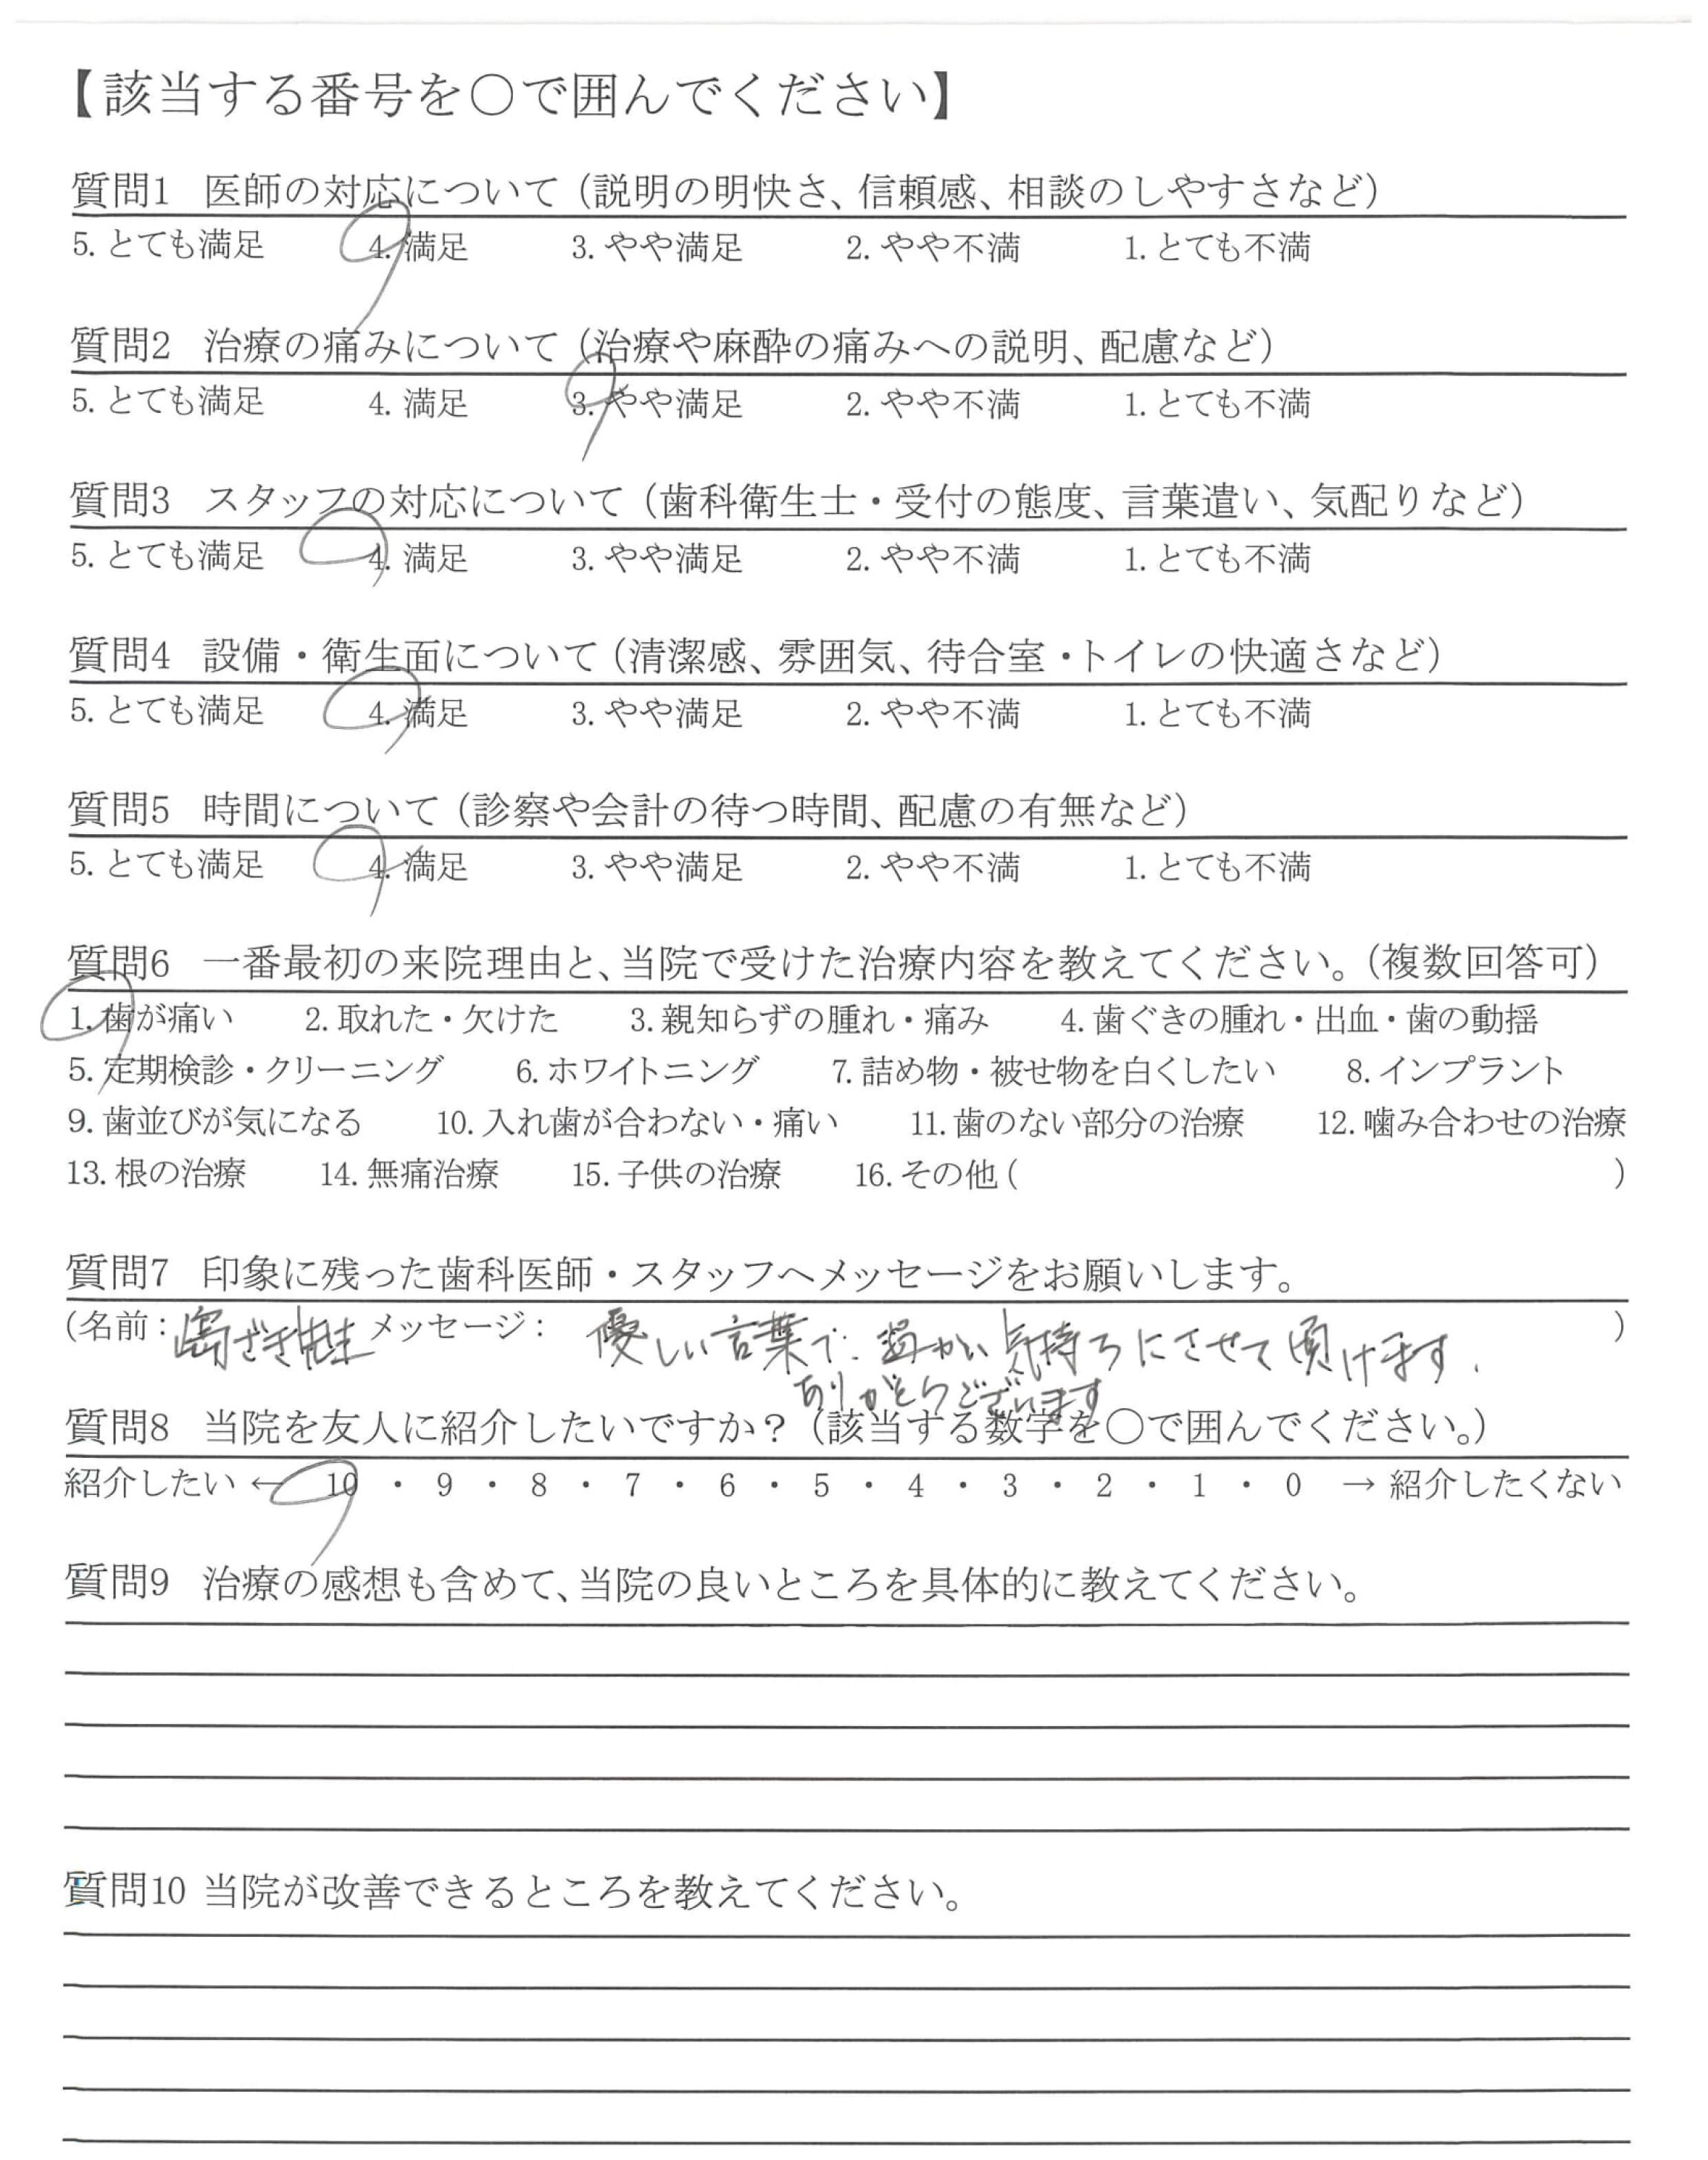 【該当する番号を○で囲んでください】
質問1 医師の対応について（説明の明快さ、信頼感、相談のしやすさなど）
5. とても満足 4. 満足 3. やや満足 2. やや不満 1. とても不満
質問2 治療の痛みについて（治療や麻酔の痛みへの説明、配慮など）
5. とても満足 4. 満足 3. やや満足 2. やや不満 1. とても不満
質問3 スタッフの対応について（歯科衛生士・受付の態度、言葉遣い、気配りなど）
5. とても満足 4. 満足 3. やや満足 2. やや不満 1. とても不満
質問4 設備・衛生面について（清潔感、雰囲気、待合室・トイレの快適さなど）
5. とても満足 4. 満足 3. やや満足 2. やや不満 1. とても不満
質問5 時間について（診察や会計の待つ時間、配慮の有無など）
5. とても満足 4. 満足 3. やや満足 2. やや不満 1. とても不満
質問6 一番最初の来院理由と、当院で受けた治療内容を教えてください。（複数回答可）
1. 歯が痛い 2. 取れた・欠けた 3. 親知らずの腫れ・痛み 4. 歯ぐきの腫れ・出血・歯の動揺
5. 定期検診・クリーニング 6. ホワイトニング 7. 詰め物・被せ物を白くしたい 8. インプラント
9. 歯並びが気になる 10. 入れ歯が合わない・痛い 11. 歯のない部分の治療 12. 噛み合わせの治療
13. 根の治療 14. 無痛治療 15. 子供の治療 16. その他（ ）
質問7 印象に残った歯科医師・スタッフへメッセージをお願いします。
（名前：嶌ざき先生 メッセージ： 優しい言葉で温かい気持ちにさせて頂けます. ）
ありがとうございます
質問8 当院を友人に紹介したいですか？（該当する数字を○で囲んでください。）
紹介したい ← 10 ・ 9 ・ 8 ・ 7 ・ 6 ・ 5 ・ 4 ・ 3 ・ 2 ・ 1 ・ 0 → 紹介したくない
質問9 治療の感想も含めて、当院の良いところを具体的に教えてください。
質問10 当院が改善できるところを教えてください。